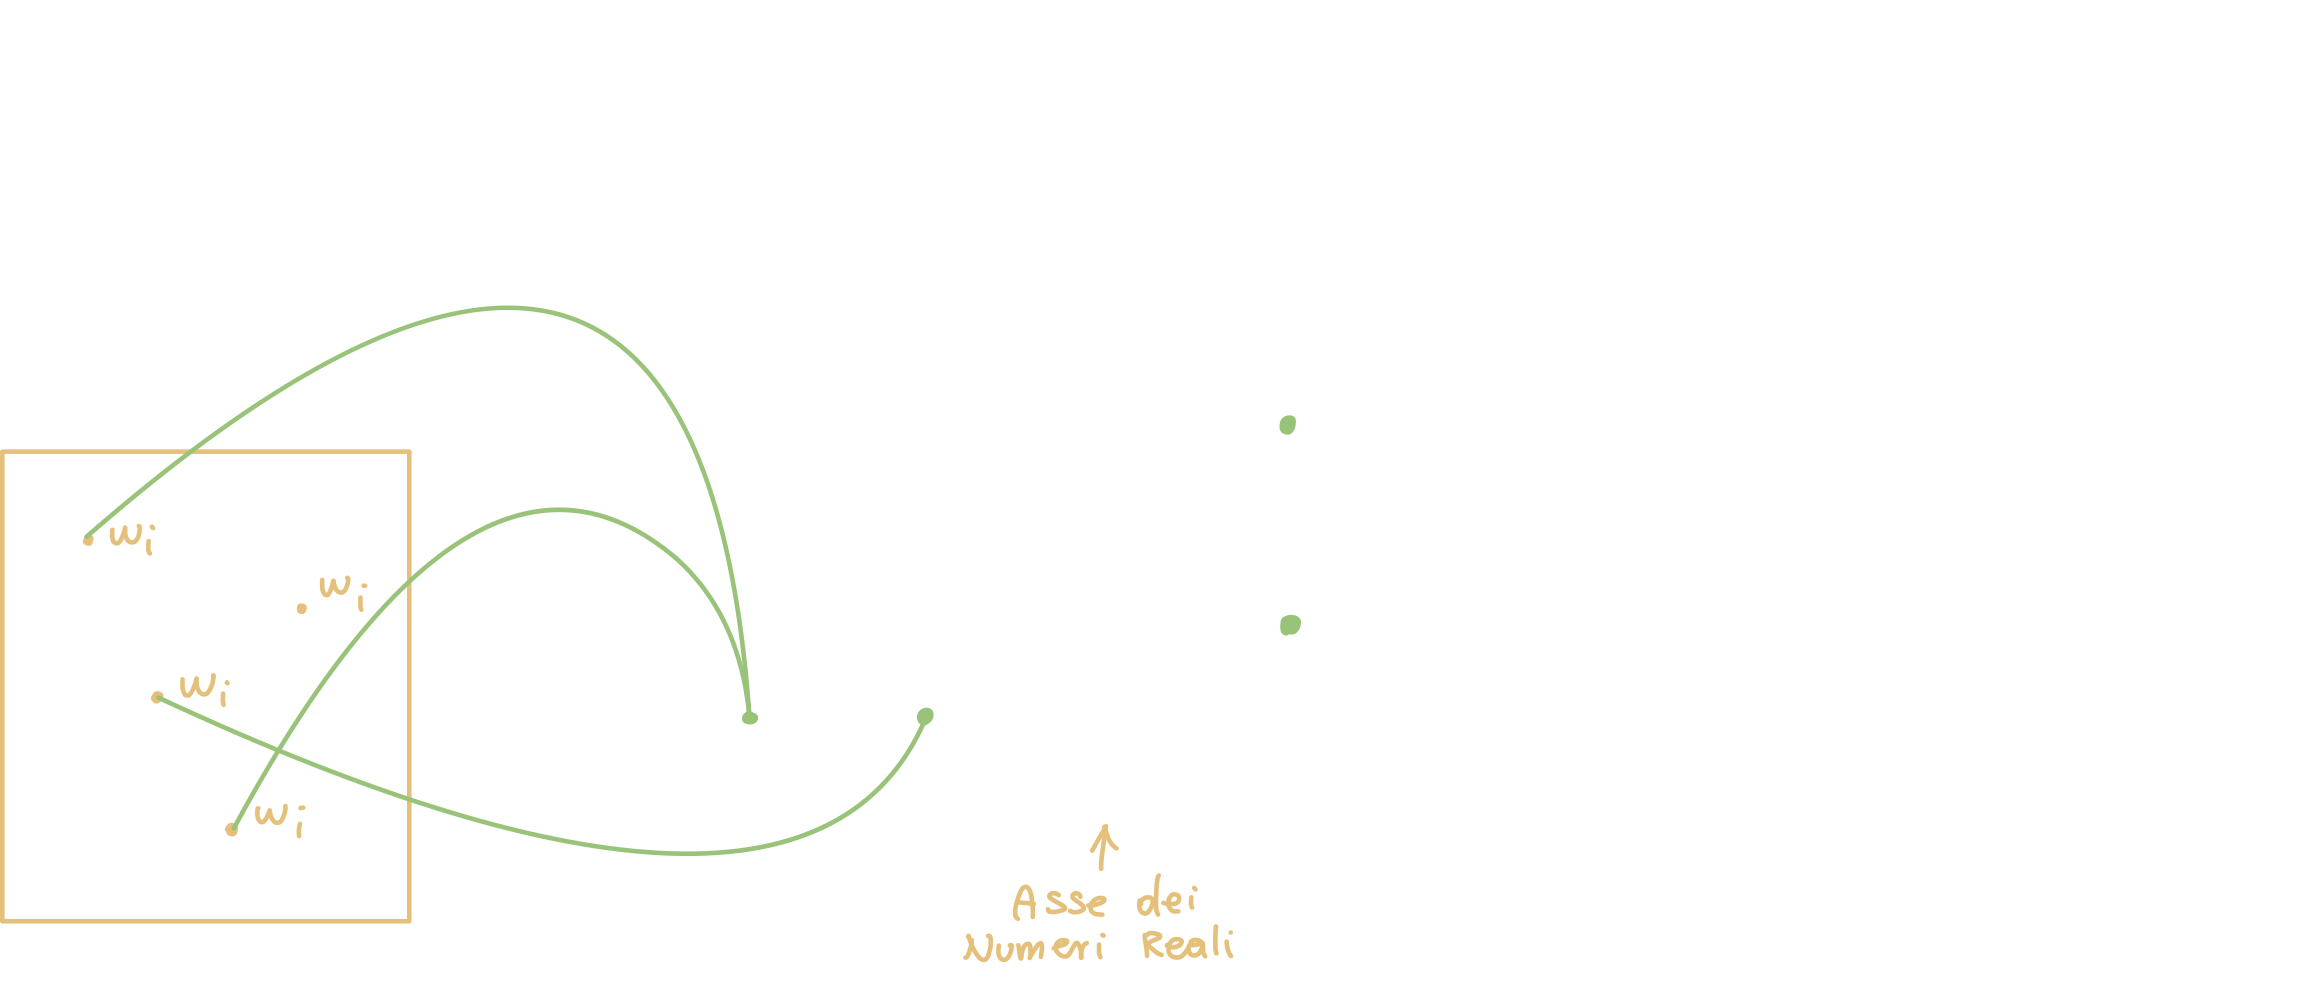 wi
wi
wi
wi
Asse dei
Numeri Reali